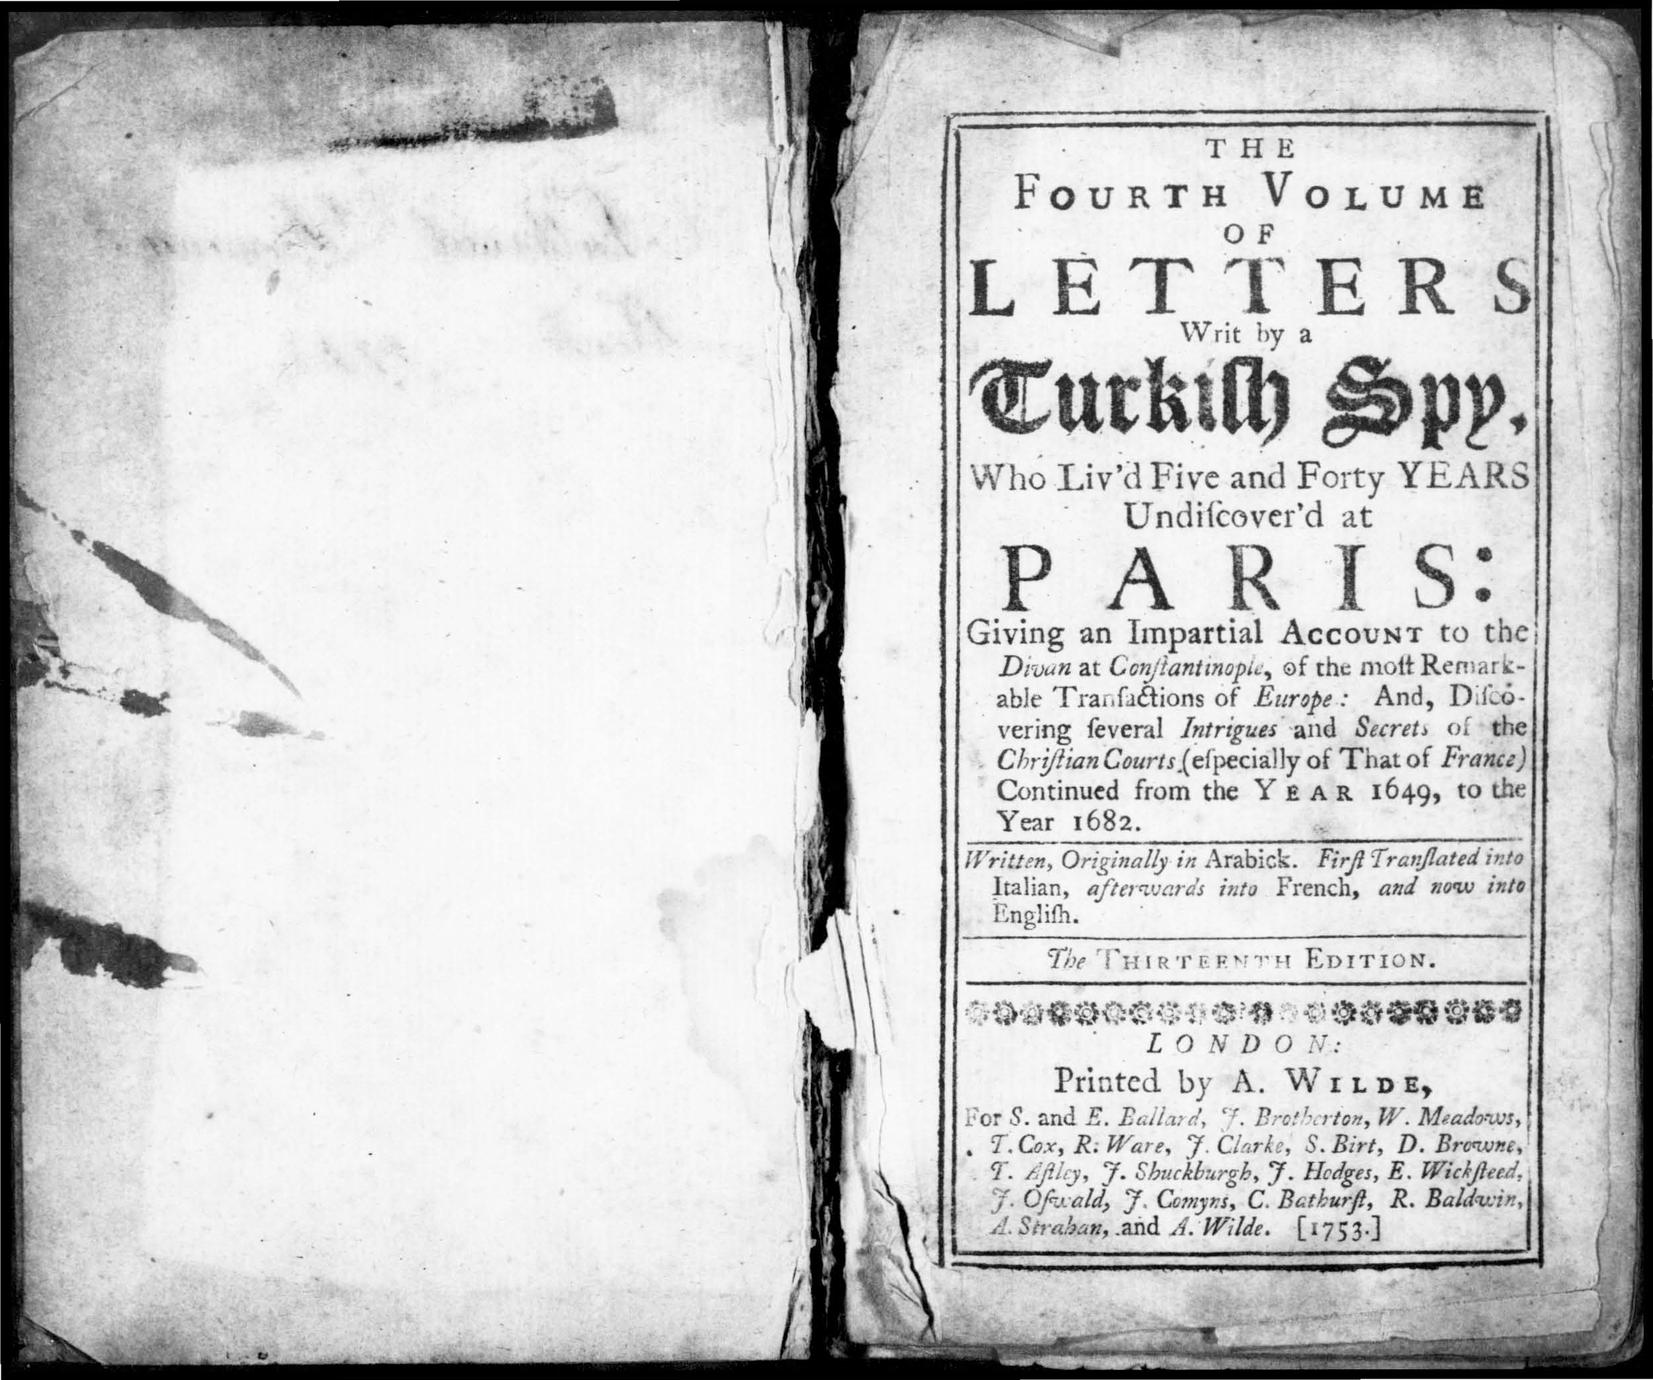 THE
FOURTH VOLUME
OF
LETTERS
Writ by a
Turkiſh Spy,
Who Liv'd Five and Forty YEARS
Undiſcover'd at
PARIS:
Giving an Impartial ACCOUNT to the
Divan at Conſtantinople, of the moſt Remark-
able Tranſactions of Europe: And, Diſco-
vering ſeveral Intrigues and Secrets of the
Chriſtian Courts (eſpecially of That of France)
Continued from the YEAR 1649, to the
Year 1682.
Written, Originally in Arabick. Firſt Tranſlated into
Italian, afterwards into French, and now into
Engliſh.
The THIRTEENTH EDITION.
LONDON:
Printed by A. WILDE,
For S. and E. Ballard, J. Brotherton, W. Meadows,
T. Cox, R. Ware, J. Clarke, S. Birt, D. Browne,
T. Aſtley, J. Shuckburgh, J. Hodges, E. Wickſteed,
J. Oſwald, J. Comyns, C. Bathurſt, R. Baldwin,
A. Strahan, and A. Wilde. [1753.]